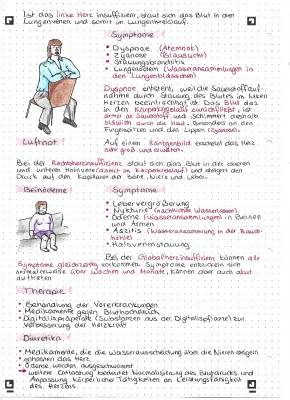 Ist das linke Herz insuffizient, staut sich das Blut in den
Lungenvenen und somit im Lungenkreislauf.
Symptome
• Dyspnoe (Atemnot)
• Zyanose (Blausucht)
• Stauungsbronchitis
• Lungenödem (Wasseransammlungen in
den Lungenbläschen)
Dyspnoe entsteht, weil die Sauerstoffauf-
nahme durch Stauung des Blutes im linken
Herzen beeinträchtigt ist. Das Blut, das
in den Körperkreislauf zurückfließt, ist
arm an Sauerstoff und schimmert deshalb
bläulich durch die Haut. Besonders an den
Fingerspitzen und den Lippen (Zyanose).
Luftnot
Auf einem Röntgenbild erscheint das Herz
sehr groß und
Bei der Rechtsherzinsuffizienz staut sich das Blut in der oberen
und unteren Hohlvene (damit im Körperkreislauf) und steigert den
Druck auf den Kapillaren der Beine, Niere und Leber.
Beinödeme
Symptome
• Lebervergrößerung
• Nykturie (nächtliches Wasserlassen)
• Ödeme (Wasseransammlungen) in Beinen
und Armen
• Aszitis (Wasseransammlung in der Bauch-
höhle)
• Halsvenenstauung
Bei der Globalherzinsuffizienz können alle
Symptome gleichzeitig vorkommen. Symptome entwickeln sich
normalerweise über Wochen und Monate, können aber auch akut
auftreten
Therapie
• Behandlung der Vorerkrankungen
• Medikamente gegen Bluthochdruck
• Digitalispräparate (Substanzen aus der Digitalispflanze) zur
Verbesserung der Herzkraft
Diuretika
• Medikamente, die die Wasserausscheidung über die Nieren steigern
entlasten das Herz.
• Ödeme werden ausgeschwemmt
→ weitere Entlastung bedeutet Normalisierung des Blutdrucks und
Anpassung körperlicher Tätigkeiten an Leistungsfähigkeit
des Herzens.